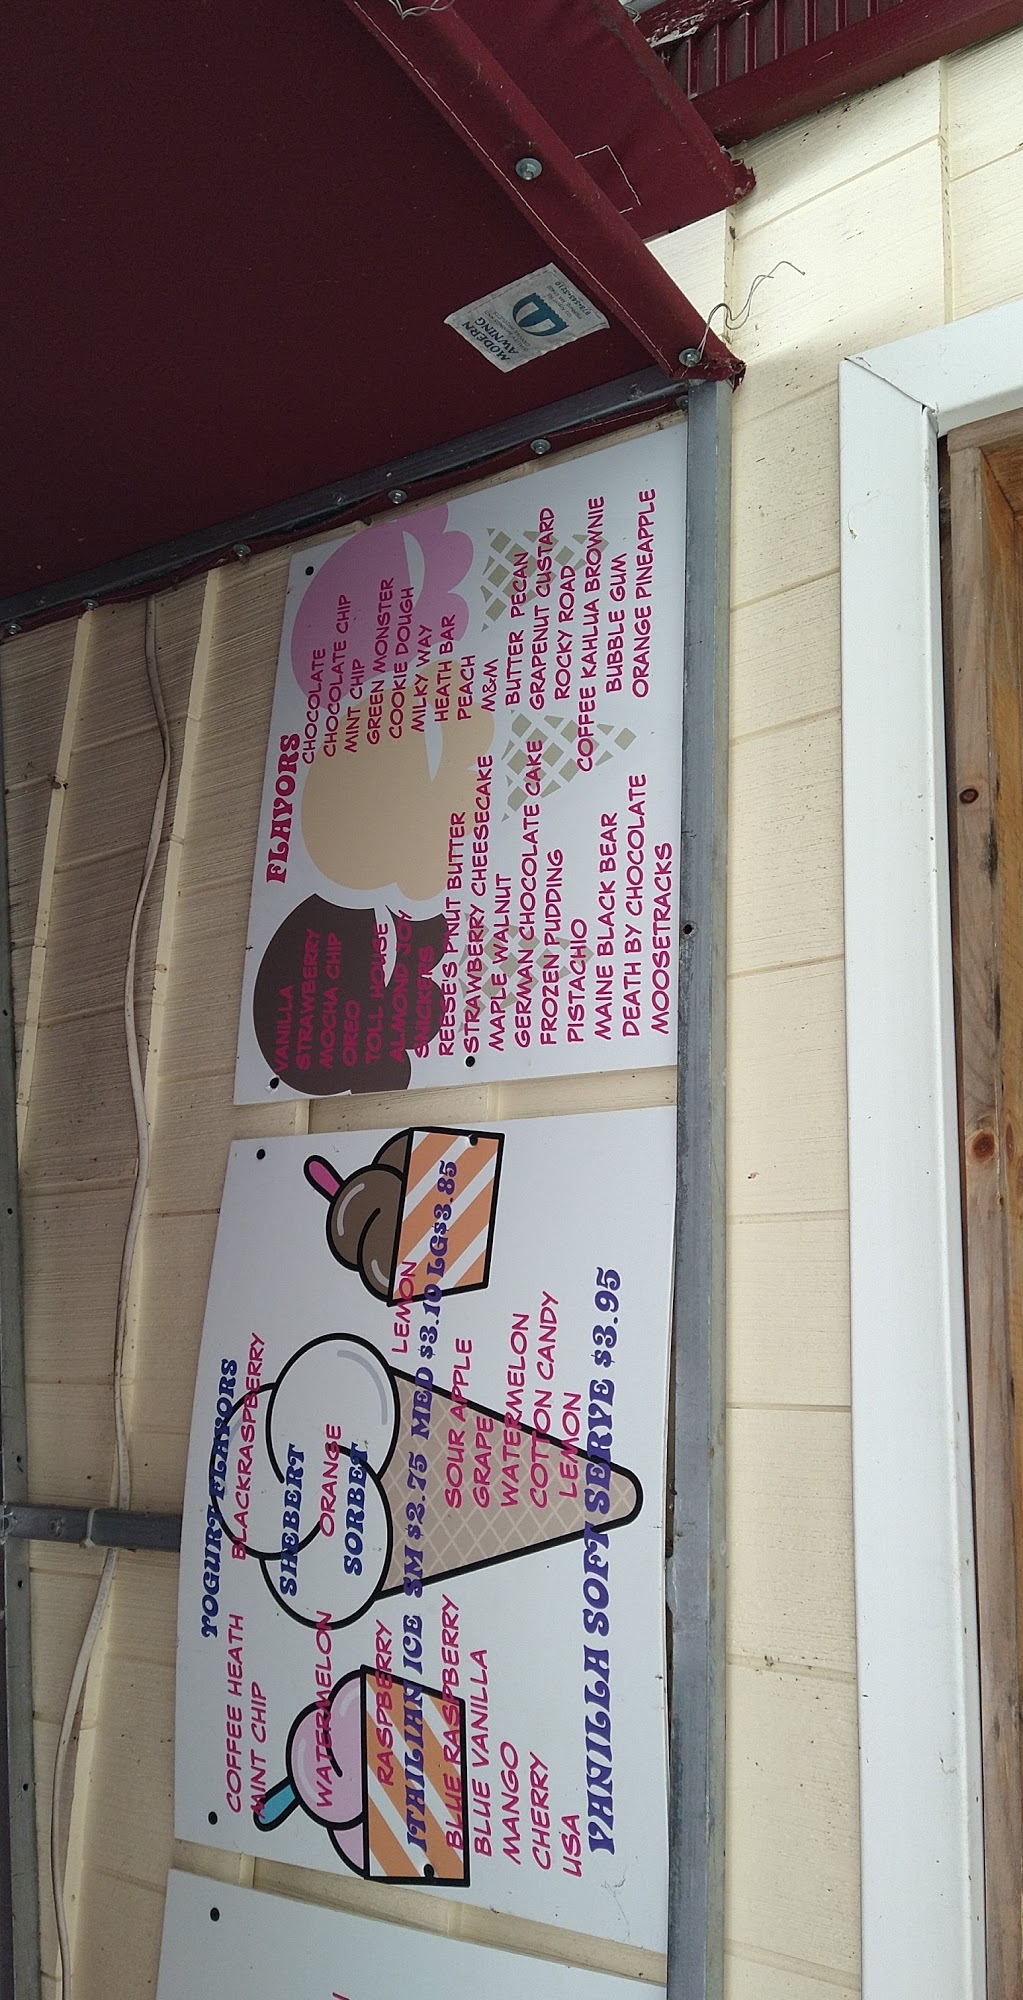 YOGURT FLAVORS
COFFEE HEATH BLACKRASPBERRY
MINT CHIP
SHEBERT
WATERMELON ORANGE
SORBET
RASPBERRY LEMON
ITAILIAN ICE SM $2.75 MED $3.10 LG$3.85
BLUE RASPBERRY SOUR APPLE
BLUE VANILLA GRAPE
MANGO WATERMELON
CHERRY COTTON CANDY
USA LEMON
VANILLA SOFT SERVE $3.95
FLAVORS
VANILLA
STRAWBERRY
MOCHA CHIP
OREO
TOLL HOUSE
ALMOND JOY
SNICKERS
REESE'S P'NUT BUTTER
STRAWBERRY CHEESECAKE
MAPLE WALNUT
GERMAN CHOCOLATE CAKE
FROZEN PUDDING
PISTACHIO
MAINE BLACK BEAR
DEATH BY CHOCOLATE
MOOSETRACKS
CHOCOLATE
CHOCOLATE CHIP
MINT CHIP
GREEN MONSTER
COOKIE DOUGH
MILKY WAY
HEATH BAR
PEACH
M&M
BUTTER PECAN
GRAPENUT CUSTARD
ROCKY ROAD
COFFEE KAHLUA BROWNIE
BUBBLE GUM
ORANGE PINEAPPLE
MODERN
AWNING